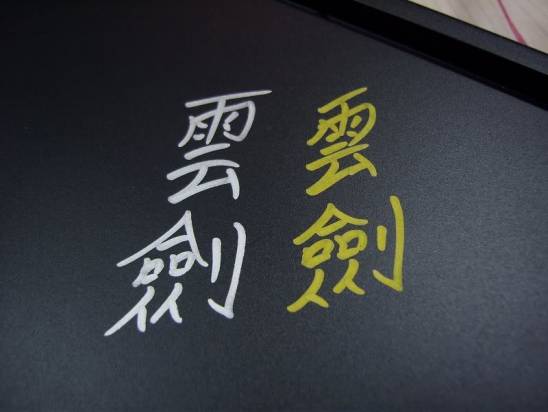 雲劍
雲劍